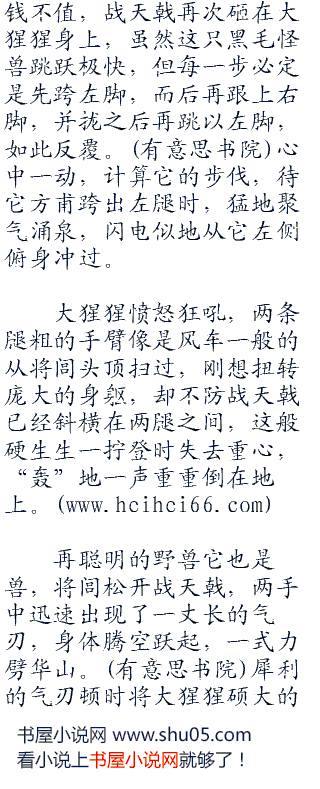 钱不值，战天戟再次砸在大
猩猩身上，虽然这只黑毛怪
兽跳跃极快，但每一步必定
是先跨左脚，而后再跟上右
脚，并拢之后再跳以左脚，
如此反覆。(有意思书院)心
中一动，计算它的步伐，待
它方甫跨出左腿时，猛地聚
气涌泉，闪电似地从它左侧
俯身冲过。
大猩猩愤怒狂吼，两条
腿粗的手臂像是风车一般的
从将闾头顶扫过，刚想扭转
庞大的身躯，却不防战天戟
已经斜横在两腿之间，这般
硬生生一拧登时失去重心，
“轰”地一声重重倒在地
上。(www.hcihci66.com)
再聪明的野兽它也是
兽，将闾松开战天戟，两手
中迅速出现了一丈长的气
刃，身体腾空跃起，一式力
劈华山。(有意思书院)犀利
的气刃顿时将大猩猩硕大的
书屋小说网 www.shu05.com
看小说上书屋小说网就够了！